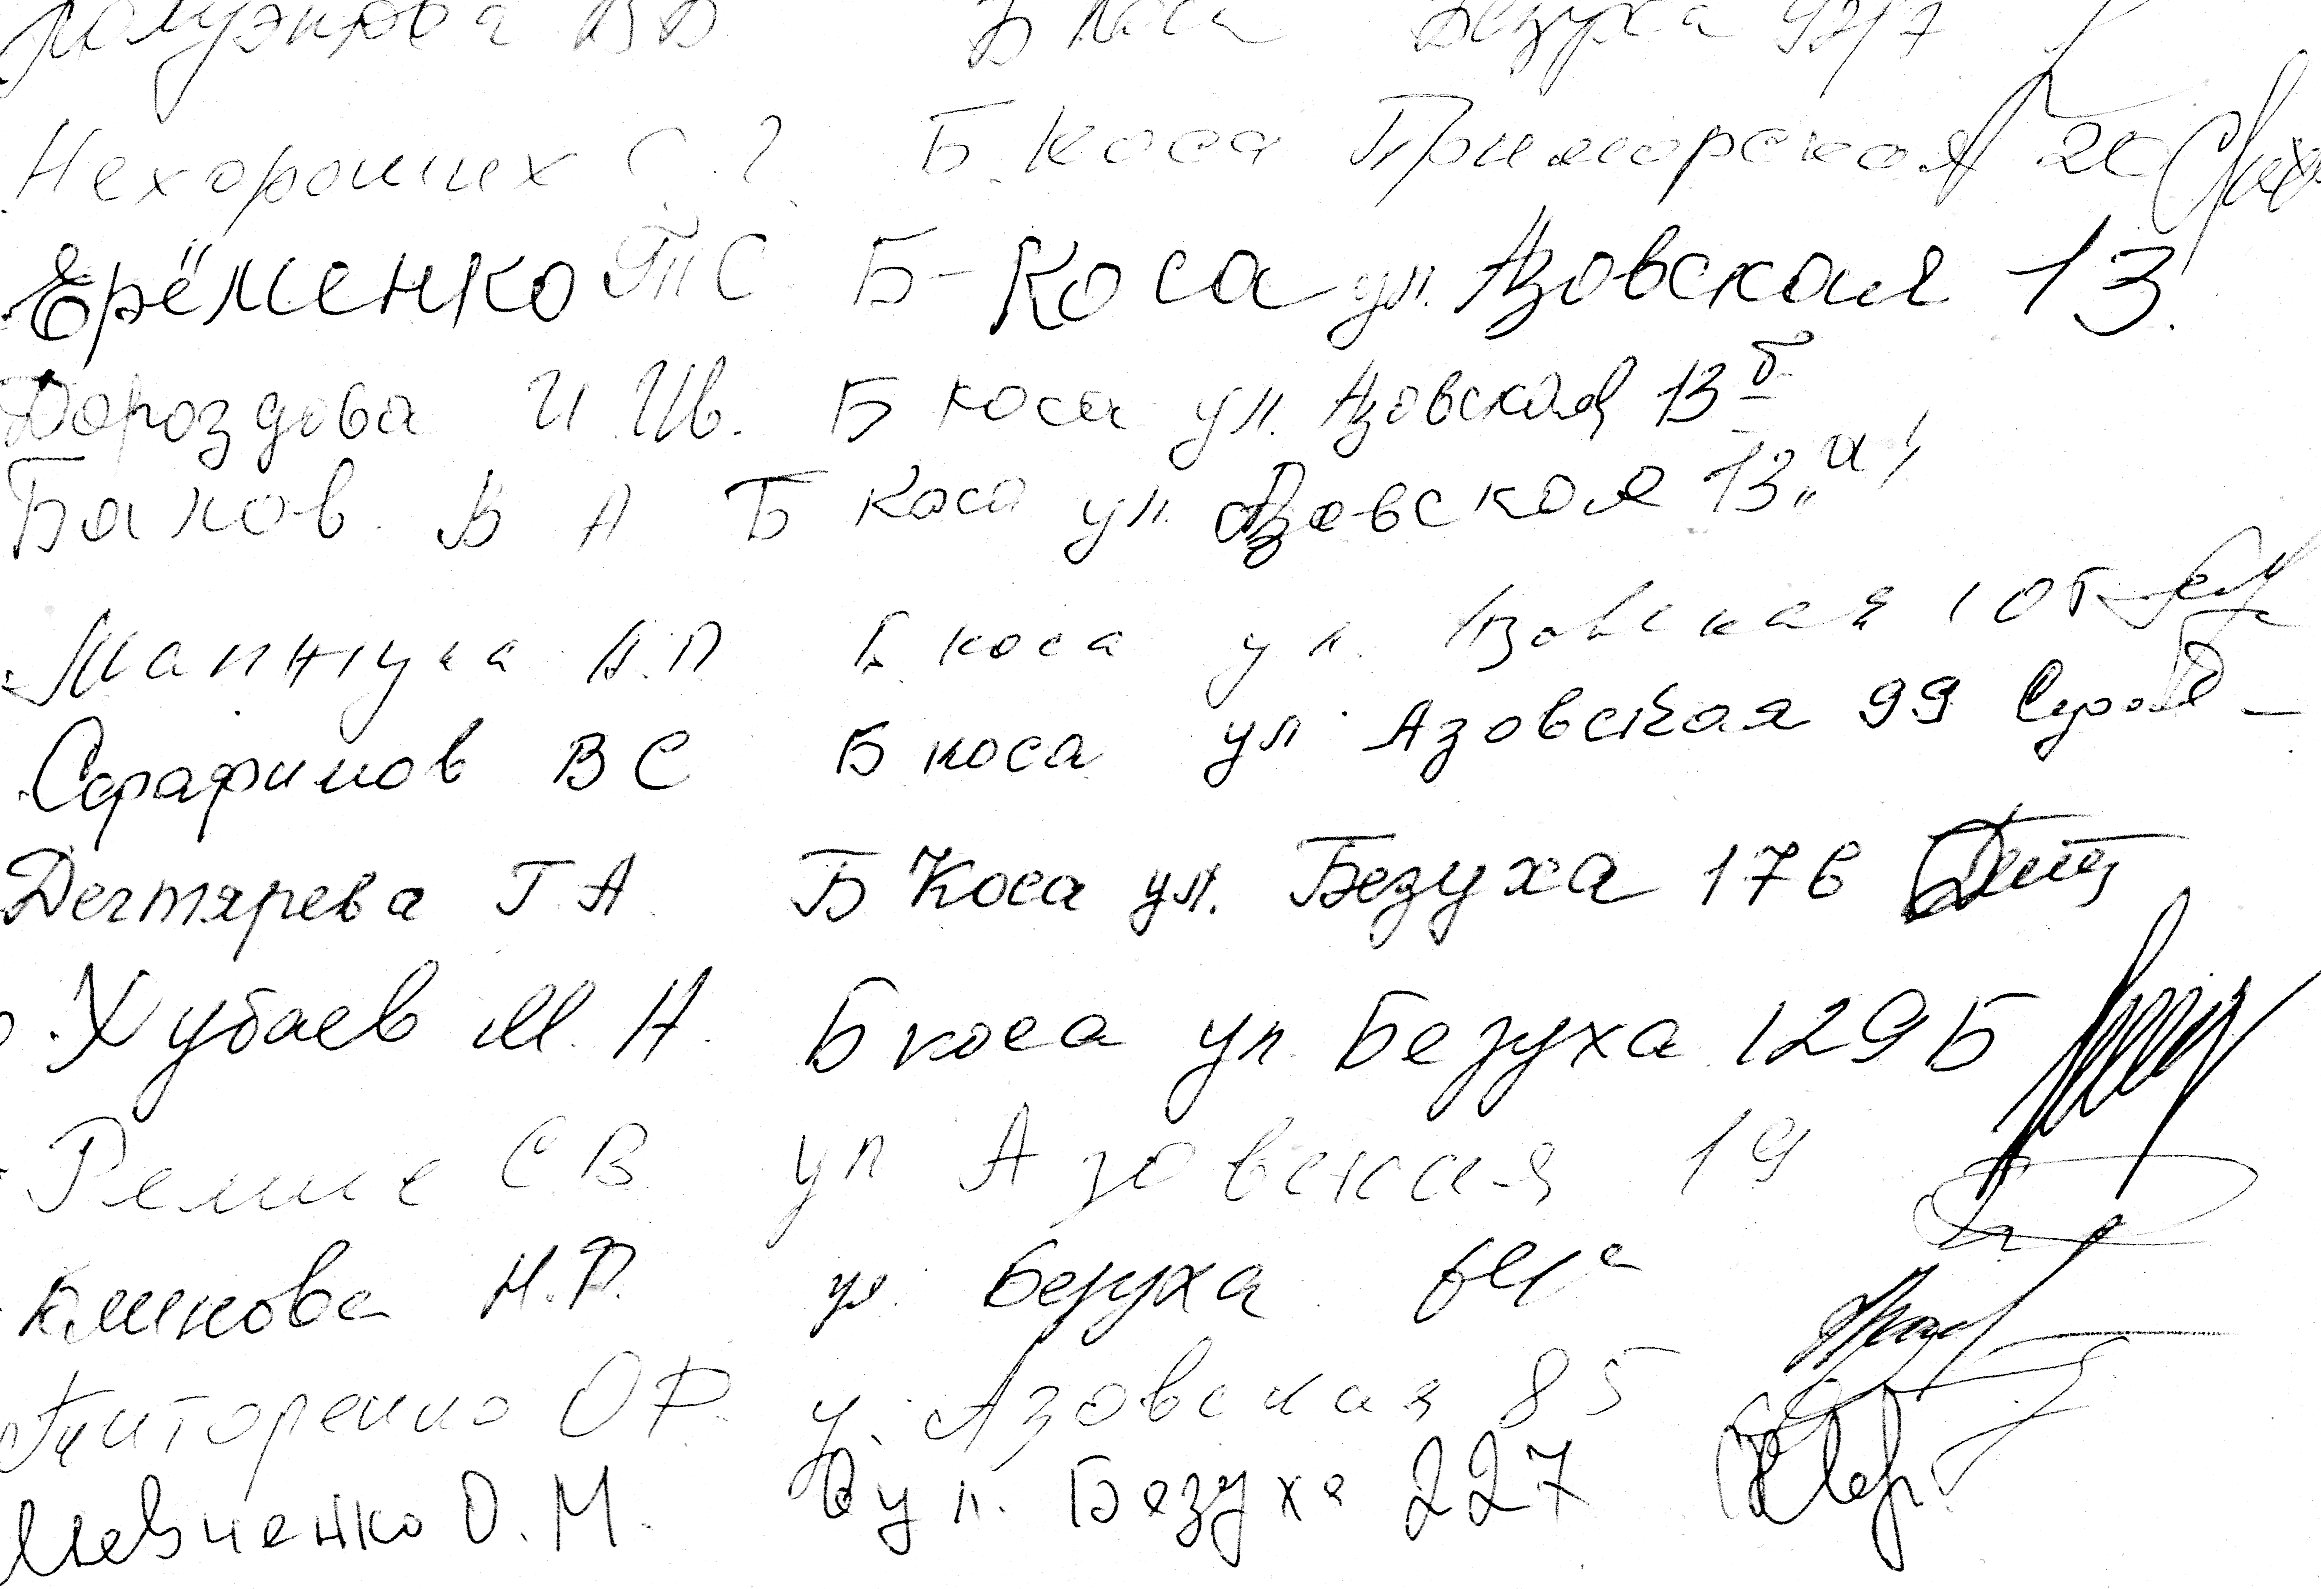 В.В. Б Коса Безуха 92/7
Нехороших С. Г. Б. Коса Приморская 20
Ерёменко Т С Б-Коса ул. Азовская 13.
Дороздова И. Ив. Б коса ул. Азовская 13 б
Баков В А Б Коса ул. Азовская 13 „а"
А.П. Б коса ул. Азовская 105
Серафимов В С Б коса ул Азовская 99
Дегтярева Г. А. Б Коса ул. Безуха 17 в
Хубаев М. Н. Б коса ул. Безуха 129 Б
С В ул Азовская 19
Климова Н.Ф. ул. Безуха 64 а
Титоренко О Ф. у. Азовская 85
Шевченко О. М. ул. Безуха 227